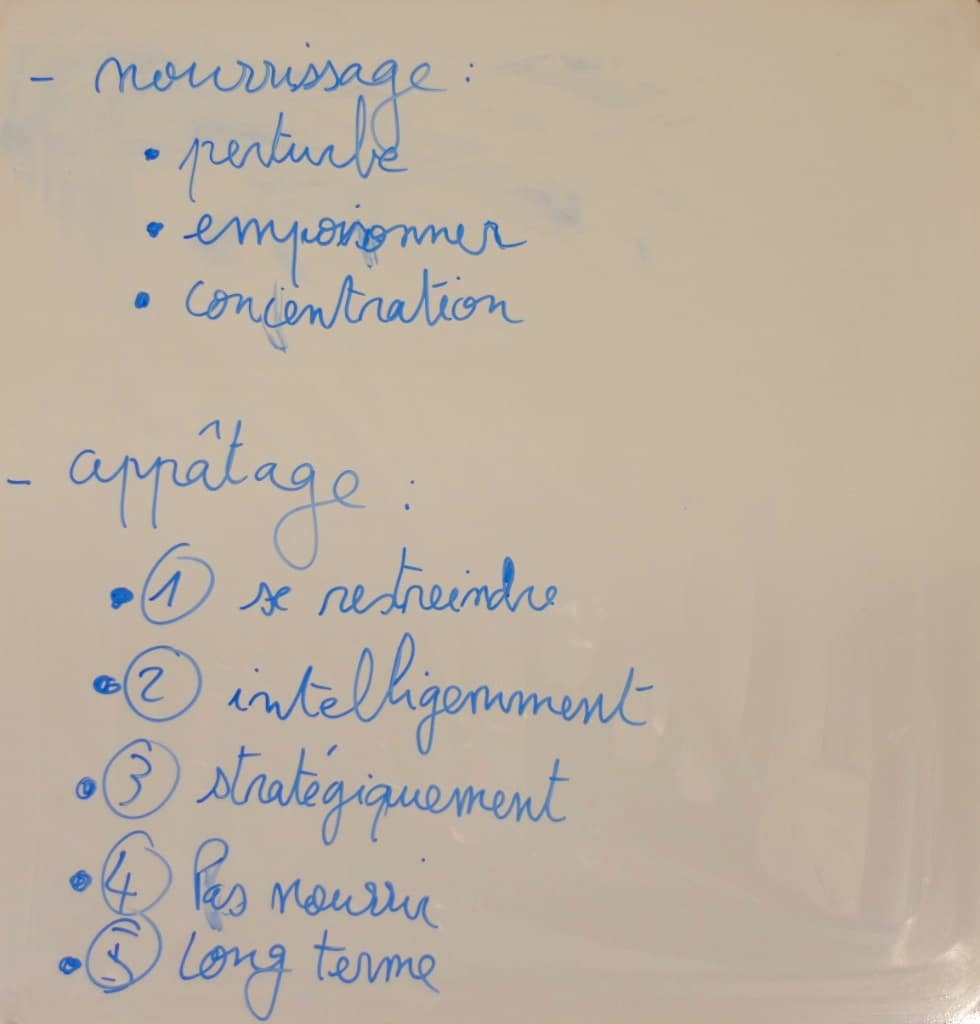 - nourrissage :
• perturbe
• empoisonner
• concentration
- appâtage :
• ① se restreindre
• ② intelligemment
• ③ stratégiquement
• ④ Pas nourrir
• ⑤ Long terme